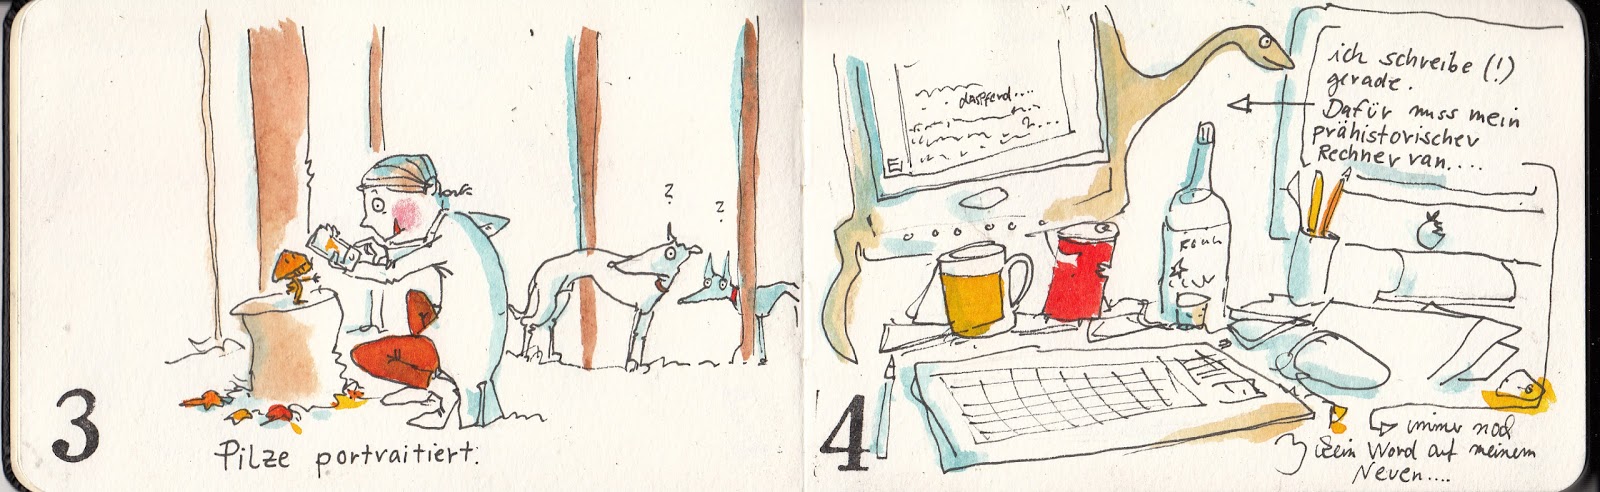 3
Pilze portraitiert.
? ?
4
dasPferd....
ich schreibe (!)
gerade.
Dafür muss mein
prähistorischer
Rechner ran....
immer noch
kein Word auf meinem
Neuen....